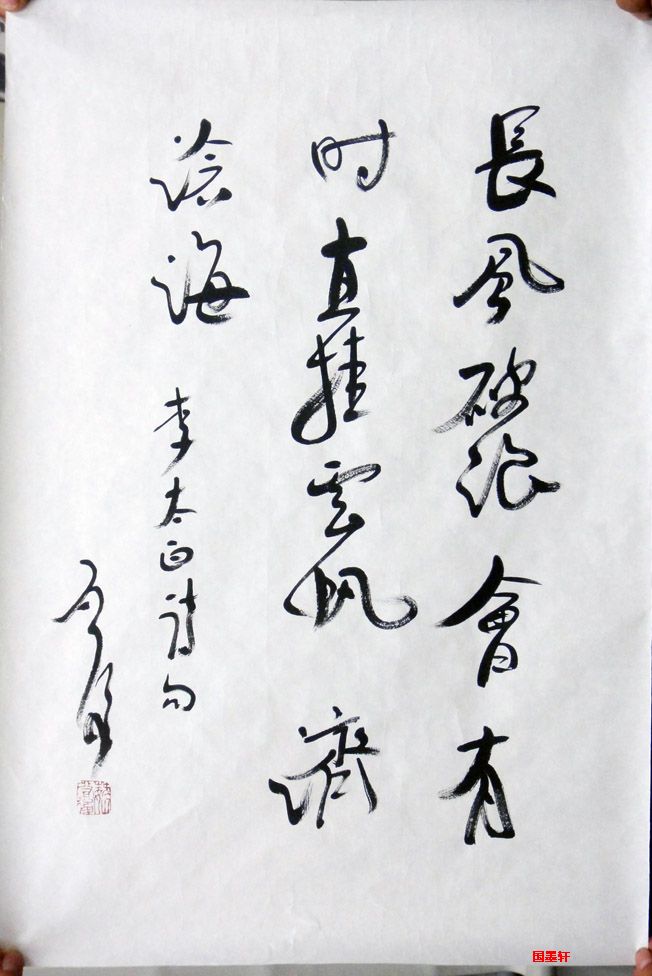 長風破浪會有
时直挂雲帆濟
滄海
李太白詩句
国墨轩